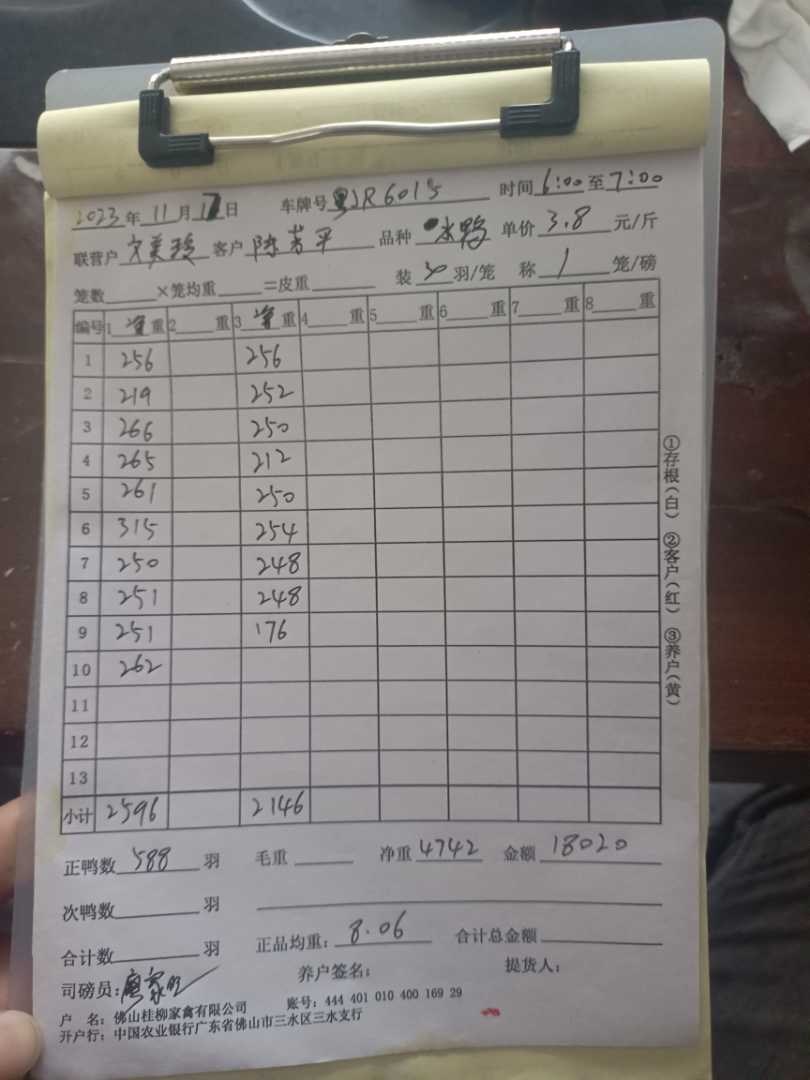 2023年11月17日 车牌号 JR6015 时间6:00至7:00
联营户 客户陈芳平 品种 水鸭 单价3.8元/斤
笼数 ×笼均重 =皮重 装30羽/笼 称1笼/磅
编号 1净重 2 重 3净重 4 重 5 重 6 重 7 重 8 重
1 256 256
2 219 252
3 266 250
4 265 212
5 261 250
6 315 254
7 250 248
8 251 248
9 251 176
10 262
11
12
13
小计 2596 2146
①存根(白) ②客户(红) ③养户(黄)
正鸭数588羽 毛重 净重4742 金额18020
次鸭数 羽
合计数 羽 正品均重:8.06 合计总金额
司磅员: 养户签名: 提货人:
户 名:佛山桂柳家禽有限公司 账号:444 401 010 400 169 29
开户行:中国农业银行广东省佛山市三水区三水支行